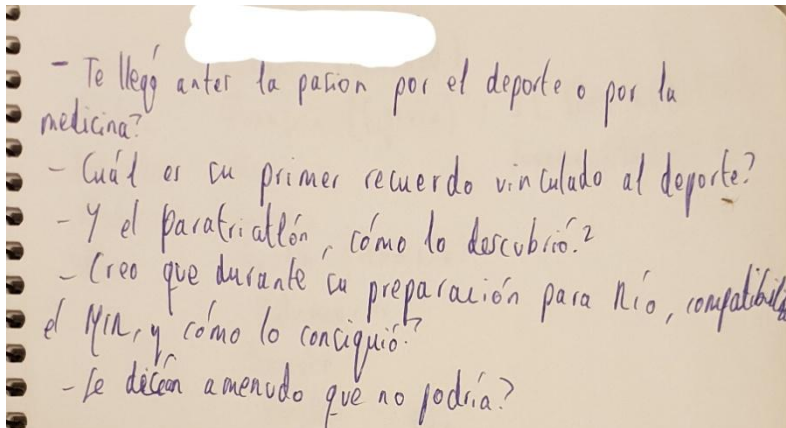 - Te llegó antes la pasion por el deporte o por la
medicina?
- Cuál es su primer recuerdo vinculado al deporte?
- Y el paratriatlón, cómo lo descubrió?
- Creo que durante su preparación para Río, compatibiliz
el MIR, y cómo lo conciguió?
- Le dicen amenudo que no podría?